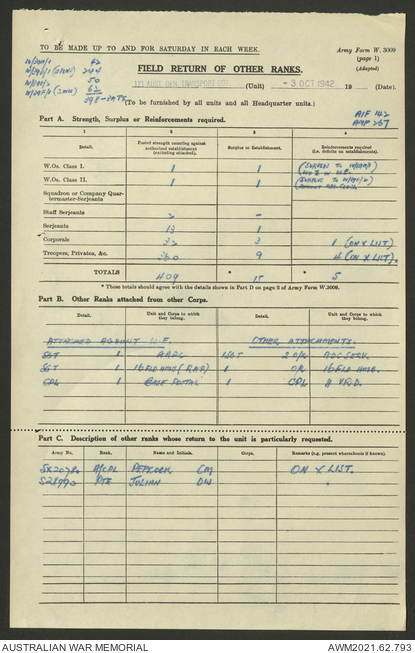 TO BE MADE UP TO AND FOR SATURDAY IN EACH WEEK.
Army Form W. 3009
(page 1)
(Adapted)
FIELD RETURN OF OTHER RANKS.
121 AUST. GEN. TRANSPORT COY. (Unit) - 3 OCT 1942 19 (Date).
(To be furnished by all units and all Headquarter units.)
AIF 142
AMF 267
Part A. Strength, Surplus or Reinforcements required.
1 2 3 4
Detail. Posted strength counting against authorized establishment (excluding attached). Surplus to Establishment. Reinforcements required (i.e. deficits on establishment).
W.Os. Class I. 1 1
W.Os. Class II. 1 1
Squadron or Company Quarter-
termaster-Serjeants
Staff Serjeants 2 -
Serjeants 13 1
Corporals 32 3 1 (ON X LIST)
Troopers, Privates, &c. 360 9 4 (ON X LIST).
TOTALS 409 * 15 * 5
* These totals should agree with the details shown in Part D on page 2 of Army Form W.3009.
Part B. Other Ranks attached from other Corps.
Detail. Unit and Corps to which they belong. Detail. Unit and Corps to which they belong.
ATTACHED AGAINST W.E. OTHER ATTACHMENTS.
SGT 1 1 SGT 2 O/R
SGT 1 1 O/R
CPL 1 BASE POSTAL 1 CPL
Part C. Description of other ranks whose return to the unit is particularly requested.
Army No. Rank. Name and Initials. Corps. Remarks (e.g. present whereabouts if known).
A/CPL CM ON X LIST.
PTE JULIAN DW "
AUSTRALIAN WAR MEMORIAL
AWM2021.62.793